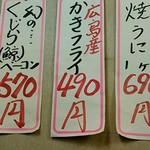 焼うに一ケ
690円
広島産
かきフライ
490円
幻の
くじら(鯨)
ベーコン
570円